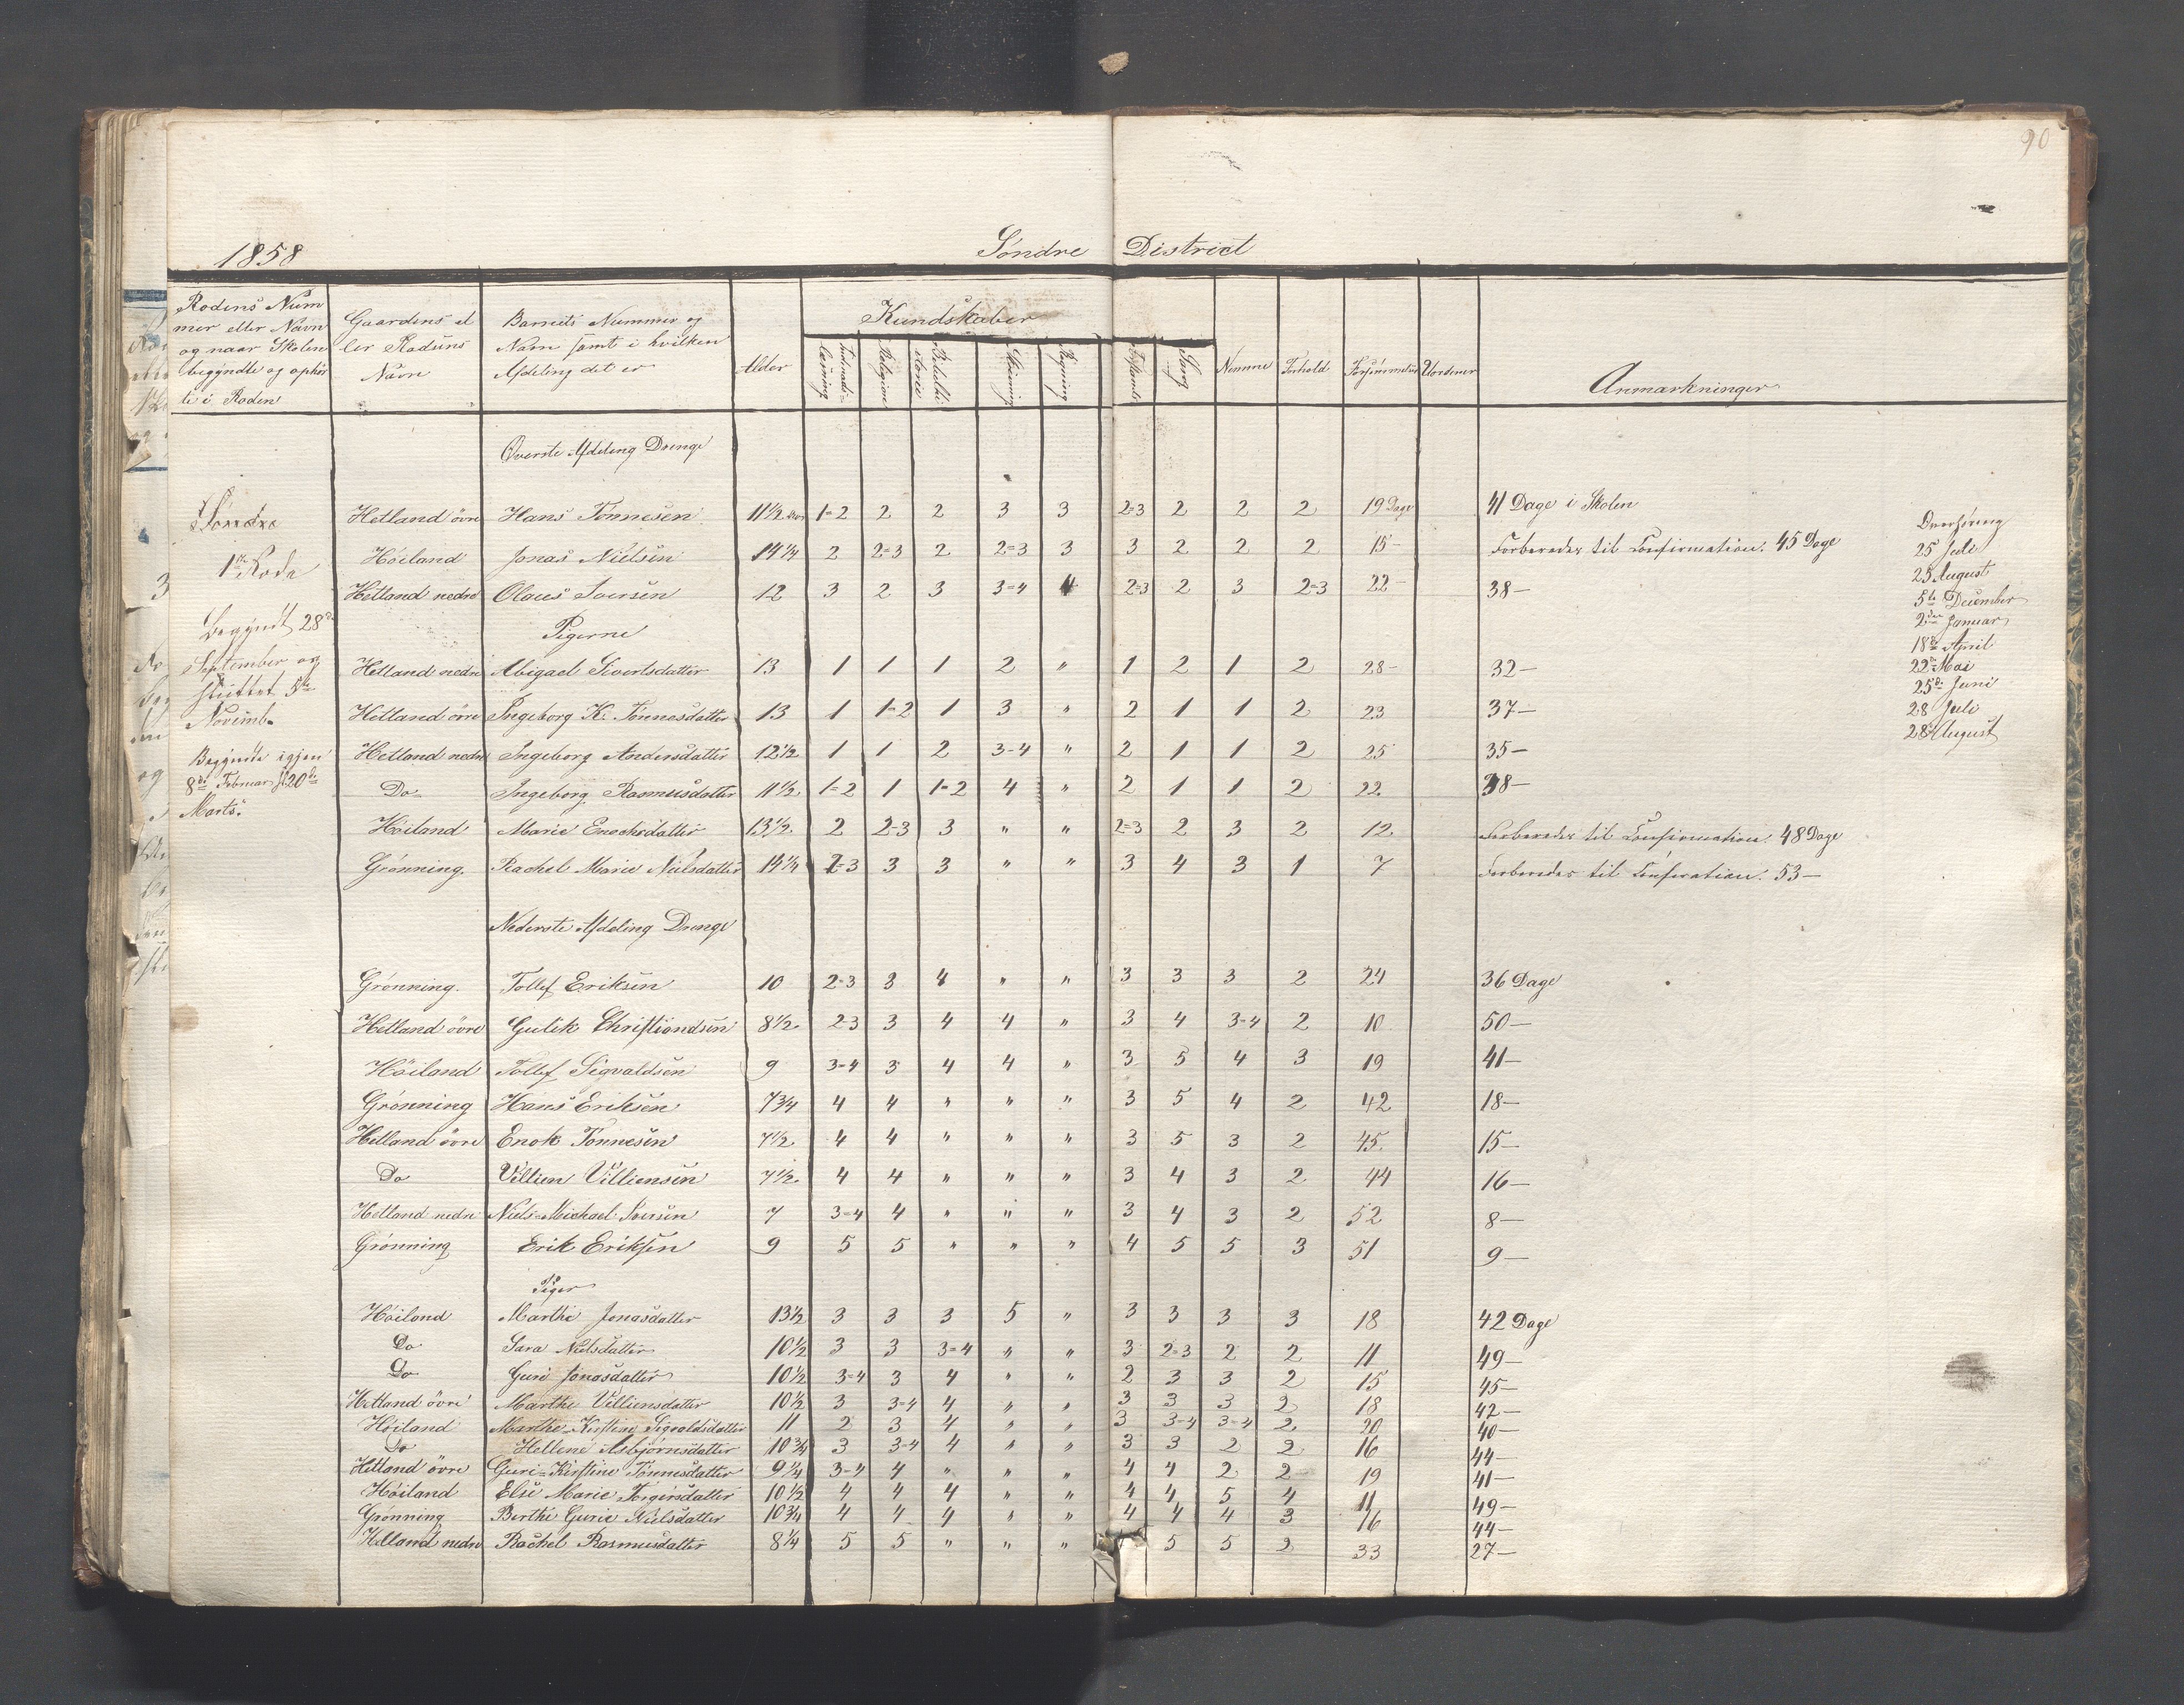 90
1858 Söndre District
Rodens Num
mer eller Navn
og naar Skolen
begyndte og ophör
te i Roden
Gaardens el
ler Stadens
Navn
Barnets Nummer og
Navn samt i hvilken
Afdeling det er
Alder
Kundskaber
Indenads=
læsning
Religion
Bibelhi=
storie
Skrivning
Regning
Sang
Nemme
Forhold
Forsömmelser
Anmærkninger
Överste Afdeling Drenge
Söndre
1ste Rode
Begyndt 28de
September og
sluttet 5te
Novemb.
Begyndte igjen
8de Februar sl 20de
Marts.
Hetland övre Hans Tönnesen 11½ Aar 1=2 2 2 3 3 2=3 2 2 2 19 Dage 41 Dage i Skolen
Höiland Jonas Nielsen 14¼ 2 2=3 2 2=3 3 3 2 2 2 15- Forberedes til Confirmation. 45 Dage
Hetland nedre Olaus Iversen 12 3 2 3 3=4 4 2=3 2 3 2=3 22- 38-
Pigerne
Hetland nedre Abigael Sivertsdatter 13 1 1 1 2 " 1 2 1 2 28- 32-
Hetland övre Ingeborg K. Tönnesdatter 13 1 1=2 1 3 " 2 1 1 2 23 37-
Hetland nedre Ingeborg Andersdatter 12½ 1 1 2 3-4 " 2 1 1 2 25 35-
Do Ingeborg Rasmusdatter 11½ 1=2 1 1=2 4 " 2 1 1 2 22 38-
Höiland Marie Enochsdatter 13½ 2 2=3 3 " " 2=3 2 3 2 12 Forberedes til Confirmation. 48 Dage
Grönning. Rachel Marie Nielsdatter 14¼ 2=3 3 3 " " 3 4 3 1 7 Forberedes til Confiration. 53-
25 Juli
25 August
5te December
2den Januar
18de April
22de Mai
25de Juni
28 Juli
28 August
Nederste Afdeling Drenge
Grönning. Tollef Eriksen 10 2=3 3 4 " " 3 3 3 2 24 36 Dage
Hetland övre Gulik Christiansen 8½ 2=3 3 4 4 " 3 4 3-4 2 10 50-
Höiland Tollef Sigvaldsen 9 3=4 3 4 4 " 3 5 4 3 19 41-
Grönning Hans Eriksen 7¾ 4 4 " " " 3 5 4 2 42 18-
Hetland övre Enok Tönnesen 7½ 4 4 " " " 3 5 3 2 45. 15-
Do Villien Villiensen 7½ 4 4 " " " 3 4 3 2 44 16-
Hetland nedre Niels=Michael Iversen 7 3=4 4 " " " 3 4 3 2 52 8-
Grönning Erik Eriksen 9 5 5 " " " 4 5 5 3 51 9-
Piger
Höiland Marthe Jonasdatter 13½ 3 3 3 5 " 3 3 3 3 18 42 Dage
Do Sara Nielsdatter 10½ 3 3 3=4 " " 3 2=3 2 2 11 49-
Do Guri Jonasdatter 10½ 3=4 3 4 " " 2 3 3 2 15 45-
Hetland övre Marthe Villiensdatter 10½ 3 3=4 4 " " 3 3 3 2 18 42-
Höiland Marthe=Kirstine Sigvaldsdatter 11 2 3 4 " " 3 3-4 3-4 2 20 40-
Do Hellene Asbjörnsdatter 10¾ 3 3-4 4 " " 3 3 2 2 16 44-
Hetland övre Guri=Kirstine Tönnesdatter 9¼ 3-4 4 " " " 4 4 2 2 19 41-
Höiland Else Marie Torgersdatter 10½ 4 4 4 " " 4 4 5 4 11 49-
Grönning Berthe Gurie Nielsdatter 10¾ 4 4 4 " " 4 4 4 3 16 44-
Hetland nedre Rachel Rasmusdatter 8¼ 5 5 " " " 5 5 2 33 27-